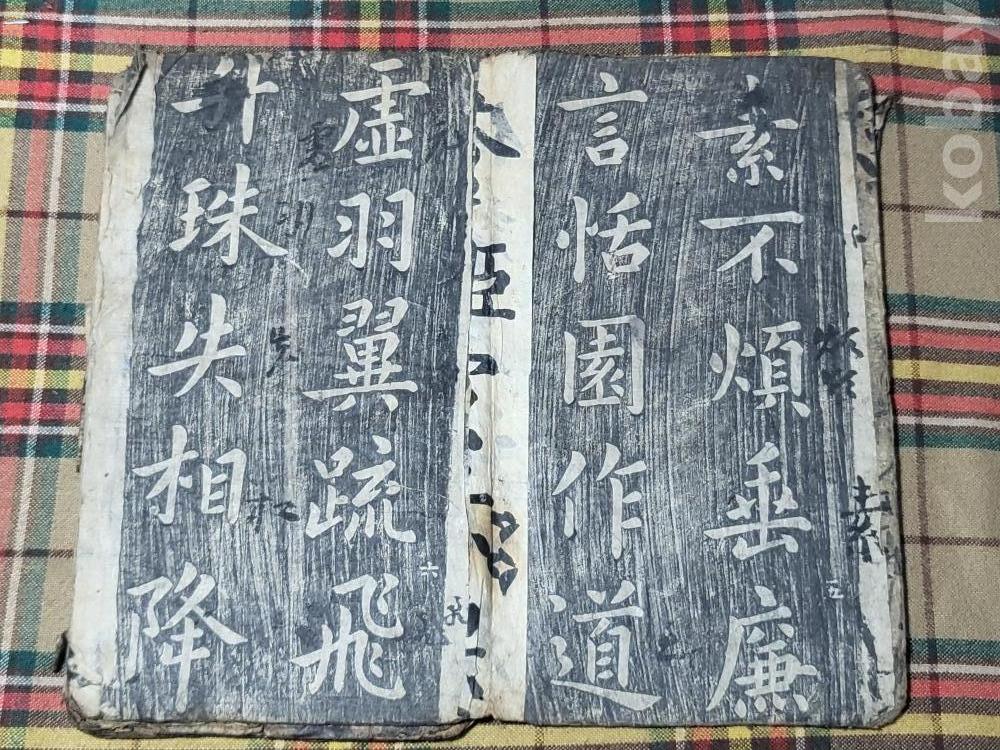 素不煩垂廉
言恬園作道
五
虛羽翼疏飛
升珠失相降
六
kobay